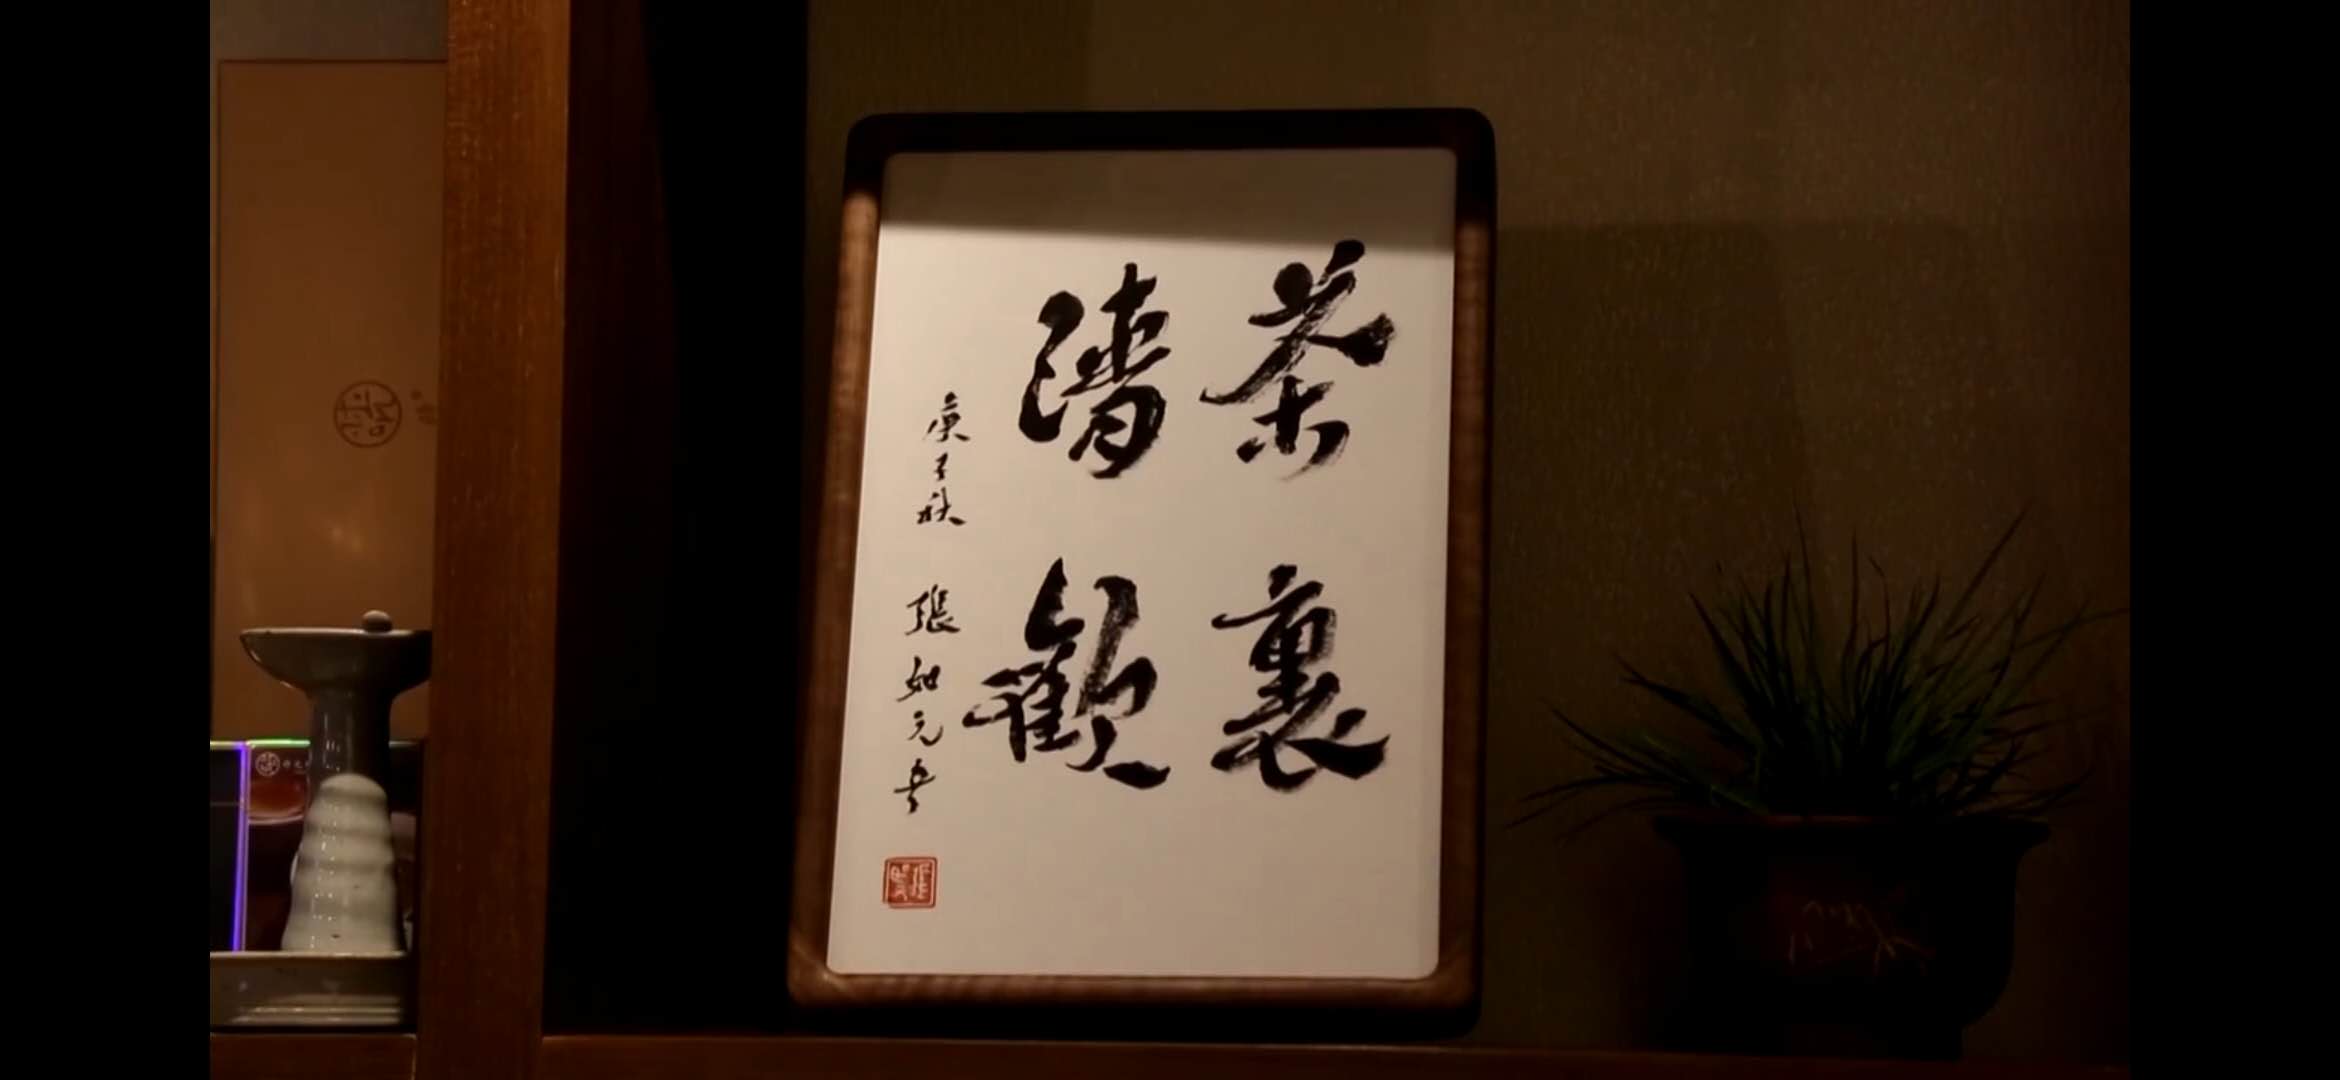 茶裏
清歡
庚子秋 張如元書